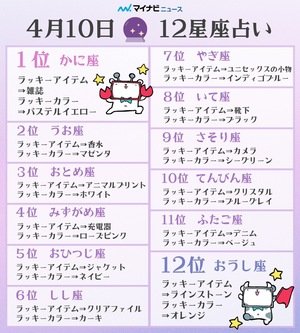 マイナビニュース
4月10日 12星座占い
1位 かに座
ラッキーアイテム
⇒雑誌
ラッキーカラー
⇒パステルイエロー
2位 うお座
ラッキーアイテム⇒香水
ラッキーカラー⇒マゼンタ
3位 おとめ座
ラッキーアイテム⇒アニマルプリント
ラッキーカラー⇒ホワイト
4位 みずがめ座
ラッキーアイテム⇒充電器
ラッキーカラー⇒ローズピンク
5位 おひつじ座
ラッキーアイテム⇒ジャケット
ラッキーカラー⇒ネイビー
6位 しし座
ラッキーアイテム⇒クリアファイル
ラッキーカラー⇒カーキ
7位 やぎ座
ラッキーアイテム⇒ユニセックスの小物
ラッキーカラー⇒インディゴブルー
8位 いて座
ラッキーアイテム⇒靴下
ラッキーカラー⇒ブラック
9位 さそり座
ラッキーアイテム⇒カメラ
ラッキーカラー⇒シーグリーン
10位 てんびん座
ラッキーアイテム⇒クリスタル
ラッキーカラー⇒ブルーグレイ
11位 ふたご座
ラッキーアイテム⇒デニム
ラッキーカラー⇒ベージュ
12位 おうし座
ラッキーアイテム
⇒ラインストーン
ラッキーカラー
⇒オレンジ